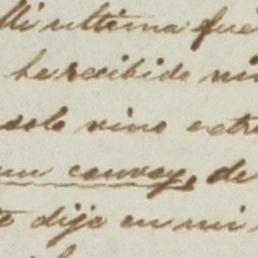 Mi ultima fue
he recibido ni
solo vino extr
un convoy, de
te dije en mi